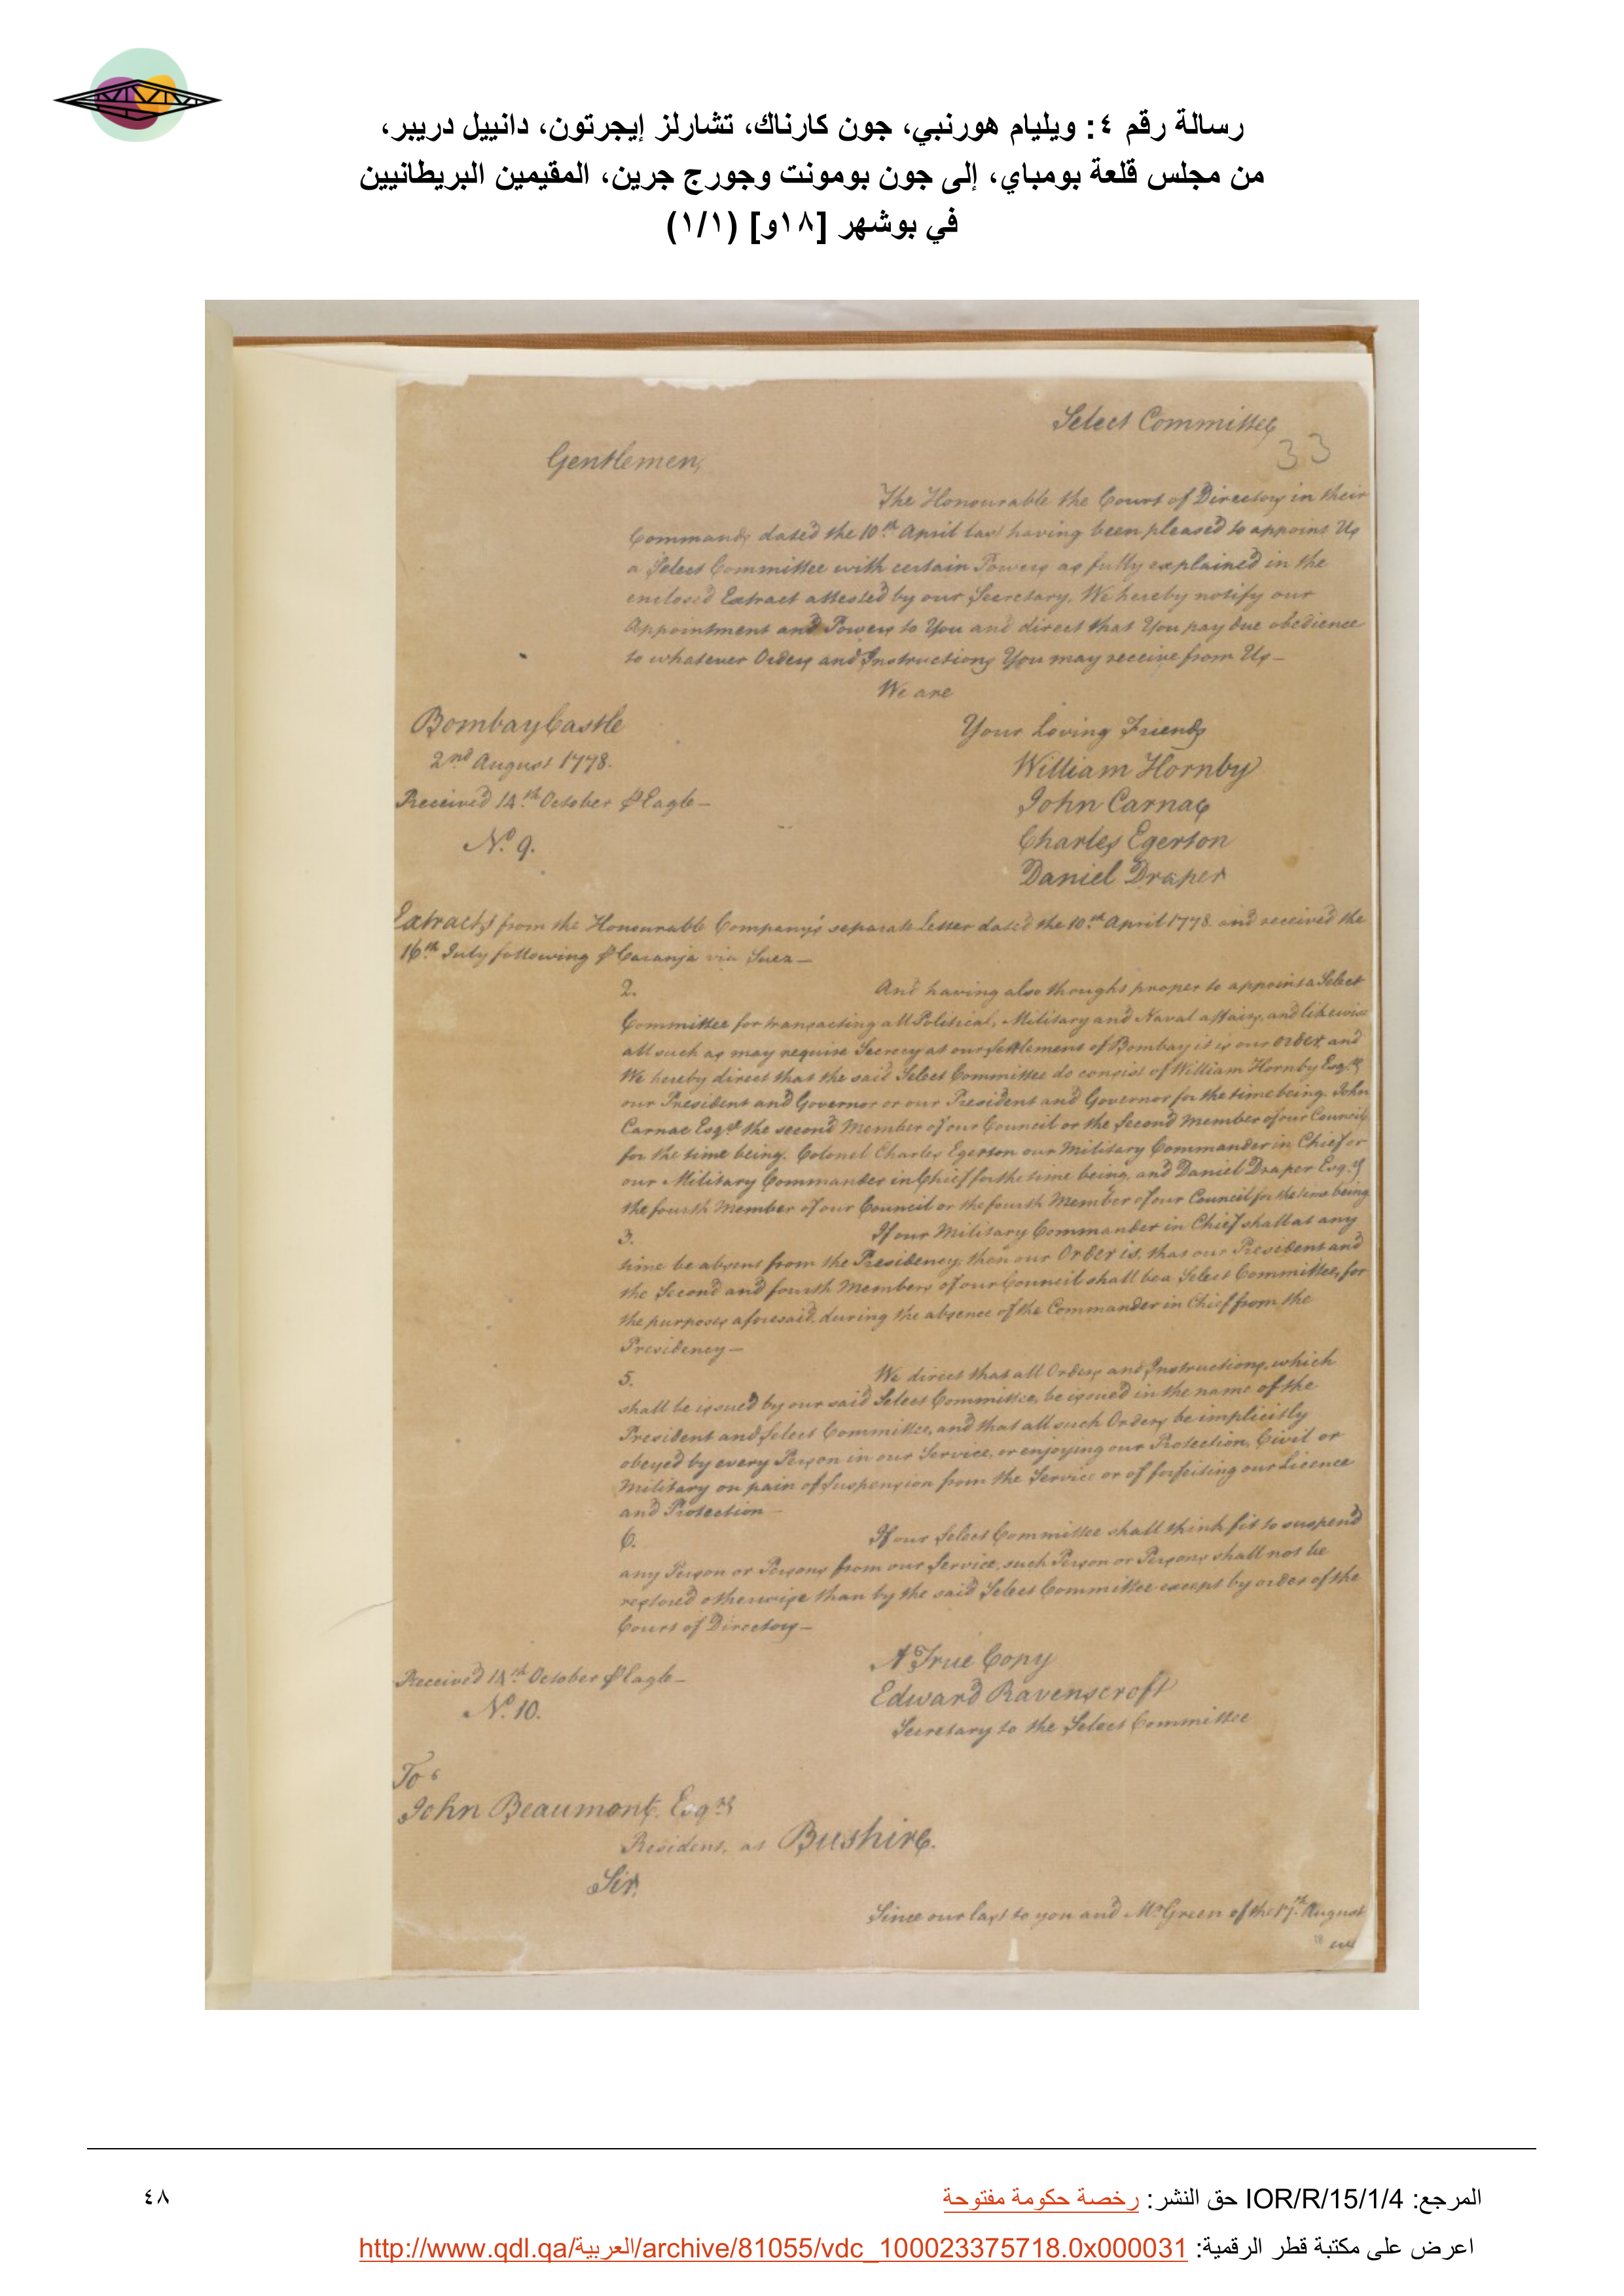 رسالة رقم ٤: ويليام هورنبي، جون كارناك، تشارلز إيجرتون، دانييل دريبر،
من مجلس قلعة بومباي، إلى جون بومونت وجورج جرين، المقيمين البريطانيين
في بوشهر [١٨و] (١/١)
Select Committee
33
Gentlemen,
The Honourable the Court of Directors in their
Commands dated the 10th April last having been pleased to appoint Us
a Select Committee with certain Powers as fully explained in the
enclosed Extract attested by our Secretary, We hereby notify our
Appointment and Powers to You and direct that You pay due obedience
to whatever Orders and Instructions You may receive from Us—
We are
Your Loving Friends
William Hornby
John Carnac
Charles Egerton
Daniel Draper
Bombay Castle
2nd August 1778.
Received 14th October ⅌ Eagle—
No. 9.
Extracts from the Honourable Company's separate Letter dated the 10th April 1778 and received the
16th July following ⅌ Caranja via Suez—
2. And having also thought proper to appoint a Select
Committee for transacting all Political, Military and Naval affairs, and likewise
all such as may require Secrecy at our Settlement of Bombay it is our order, and
We hereby direct that the said Select Committee do consist of William Hornby Esqr.
our President and Governor or our President and Governor for the time being. John
Carnac Esqr. the second Member of our Council or the Second Member of our Council
for the time being. Colonel Charles Egerton our Military Commander in Chief or
our Military Commander in Chief for the time being, and Daniel Draper Esqr.
the fourth Member of our Council or the fourth Member of our Council for the time being
3. If our Military Commander in Chief shall at any
time be absent from the Presidency, then our Order is, that our President and
the Second and fourth Members of our Council shall be a Select Committee, for
the purposes aforesaid, during the absence of the Commander in Chief from the
Presidency—
5. We direct that all Orders and Instructions, which
shall be issued by our said Select Committee, be issued in the name of the
President and Select Committee, and that all such Orders be implicitly
obeyed by every Person in our Service, or enjoying our Protection, Civil or
Military on pain of Suspension from the Service or of forfeiting our Licence
and Protection—
6. If our Select Committee shall think fit to suspend
any Person or Persons from our Service, such Person or Persons shall not be
restored otherwise than by the said Select Committee except by order of the
Court of Directors—
A True Copy
Edward Ravenscroft
Secretary to the Select Committee
Received 14th October ⅌ Eagle—
No. 10.
To
John Beaumont, Esqr.
Resident, at Bushire.
Sir,
Since our last to you and Mr Green of the 17th August
18
we
المرجع: IOR/R/15/1/4 حق النشر: رخصة حكومة مفتوحة
٤٨
اعرض على مكتبة قطر الرقمية: http://www.qdl.qa/العربية/archive/81055/vdc_100023375718.0x000031